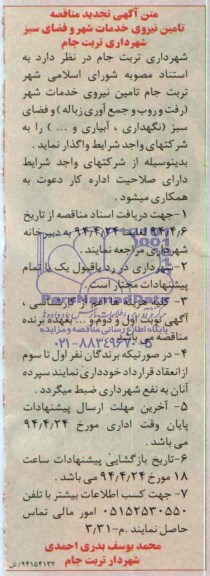 متن آگهی تجدید مناقصه
تامین نیروی خدمات شهر و فضای سبز
شهرداری تربت جام
شهرداری تربت جام در نظر دارد به
استناد مصوبه شورای اسلامی شهر
تربت جام تامین نیروی خدمات شهر
(رفت و روب و جمع آوری زباله ) و فضای
سبز (نگهداری ، آبیاری و ... ) را به
شرکتهای واجد شرایط واگذار نماید .
بدینوسیله از شرکتهای واجد شرایط
دارای صلاحیت اداره کار دعوت به
همکاری میشود .
۱-جهت دریافت اسناد مناقصه از تاریخ
۹۴/۴/۶ لغایت ۹۴/۴/۲۴ به دبیرخانه
شهرداری مراجعه نمایند .
۲-شهرداری در رد یاقبول یک یا تمام
پیشنهادات مختار است .
۳- کلیه هزینه ها اعم از کارشناسی ،
آگهی نوبت اول و دوم و ... بعهده برنده
مناقصه می باشد .
پایگاه اطلاع رسانی مناقصه و مزایده
۰۲۱-۸۸۳۴۹۶۷۰-۵
۴- در صورتیکه برندگان نفر اول تا سوم
از انعقاد قرارداد خودداری نمایند سپرده
آنان به نفع شهرداری ضبط میگردد .
۵- آخرین مهلت ارسال پیشنهادات
پایان وقت اداری مورخ ۹۴/۴/۲۴
می باشد .
۶-تاریخ بازگشایی پیشنهادات ساعت
۱۸ مورخ ۹۴/۴/۲۴ می باشد .
۷- جهت کسب اطلاعات بیشتر با تلفن
۰۵۱۵۲۵۳۰۵۵۰ امور مالی تماس
حاصل نمایند .م-۳/۳۱
محمد یوسف بدری احمدی
شهردار تربت جام
۹۴۱۵۴۱۳۲/ش